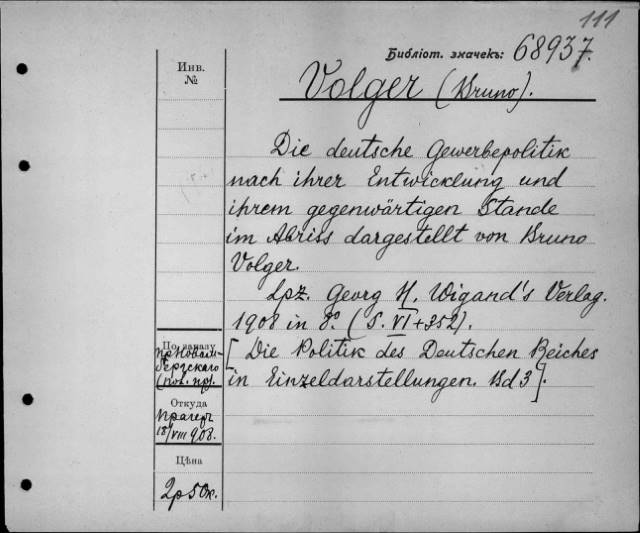 111
Библіот. значекъ: 68937.
Инв.
№
Volger (Bruno).
Die deutsche Gewerbepolitik
nach ihrer Entwicklung und
ihrem gegenwärtigen Stande
im Abriss dargestellt von Bruno
Volger.
Lpz. Georg H. Wigand's Verlag.
1908 in 8º. (S. VI+352).
[Die Politik des Deutschen Reiches
in Einzeldarstellungen. Bd 3].
По заказу
пр. Новгородцева
Откуда
Прагеръ
18/VIII 908.
Цѣна
2р 50к.